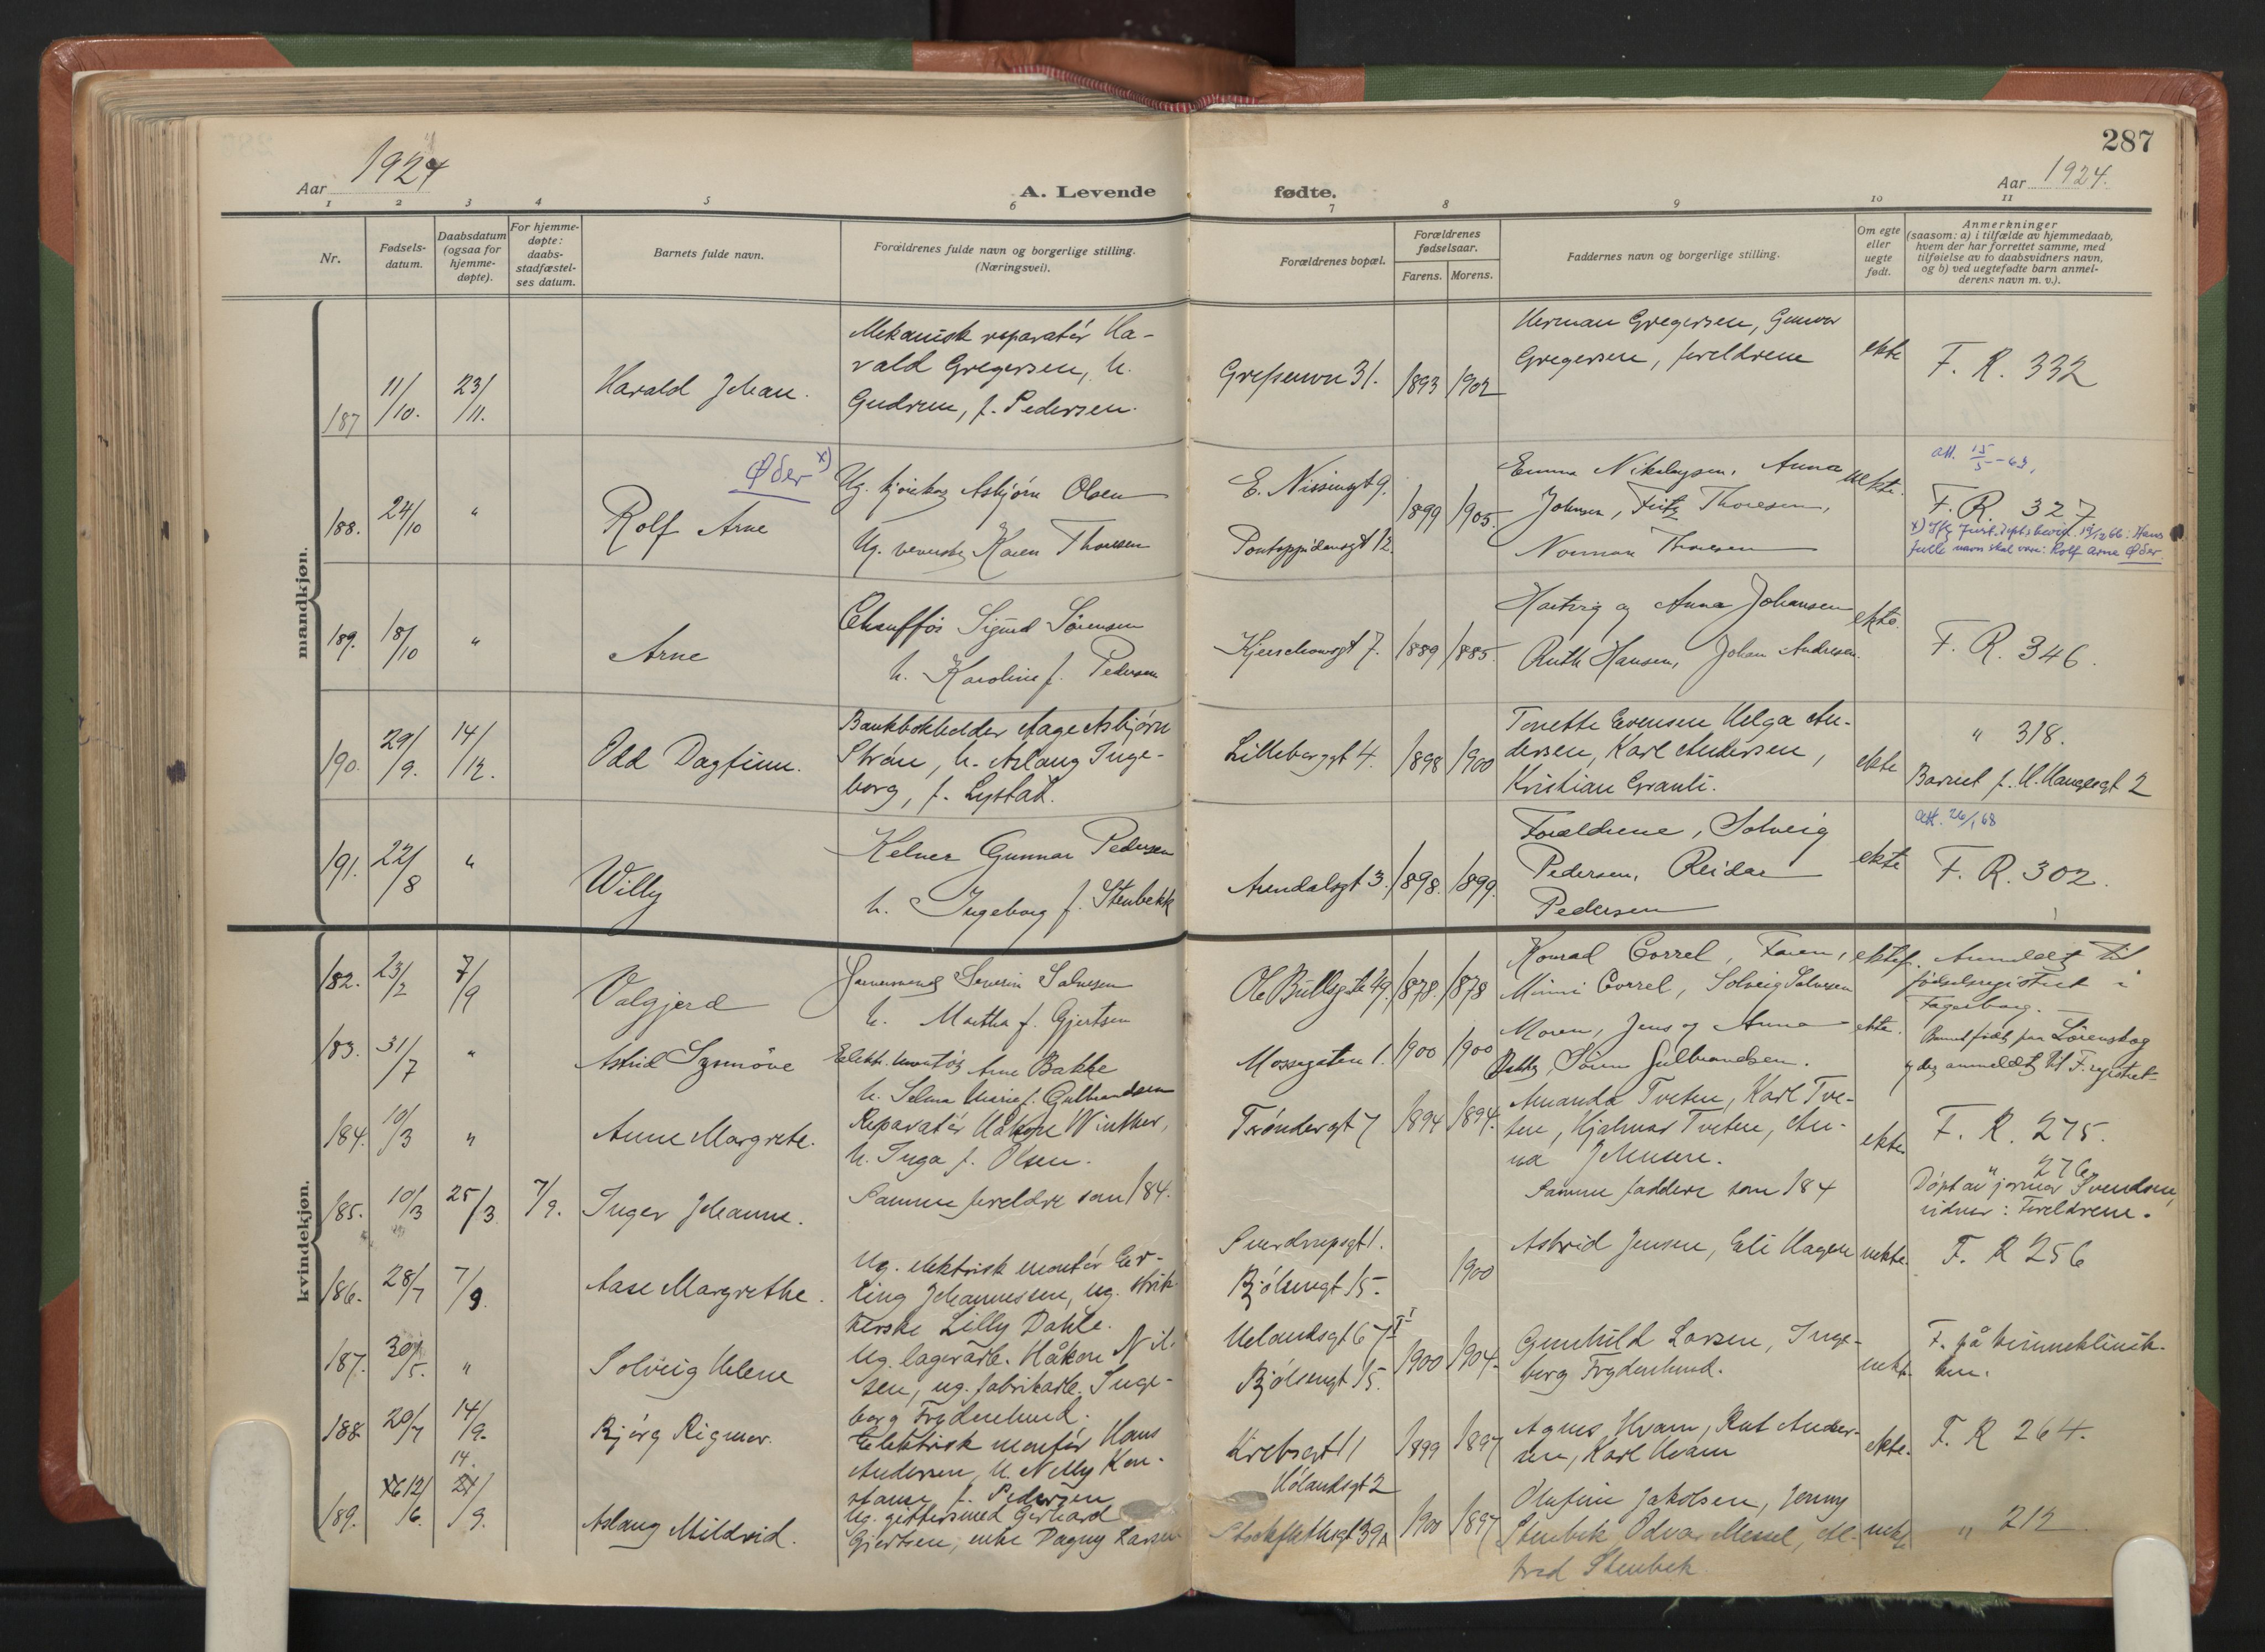 287
Aar 1924
A. Levende
fødte.
Aar 1924.
1 2 3 4 5 6 7 8 9 10 11
Nr.
Fødsels-
datum.
Daabsdatum
(ogsaa for
hjemme-
døpte).
For hjemme-
døpte:
daabs-
stadfæstel-
ses datum.
Barnets fulde navn.
Forældrenes fulde navn og borgerlige stilling.
(Næringsvei).
Forældrenes bopæl.
Forældrenes
fødselsaar.
Farens. Morens.
Faddernes navn og borgerlige stilling.
Om egte
eller
uegte
født.
Anmerkninger
(saasom: a) i tilfælde av hjemmedaab,
hvem der har forrettet samme, med
tilføielse av to daabsvidners navn,
og b) ved uegtefødte barn anmel-
derens navn m. v.).
mandkjøn.
187 11/10. 23/11. Harald Johan.
Mekanisk reparatør Ha-
vald Gregersen, h.
Gudrun, f. Pedersen.
Grefsenvn 31. 1893 1902
Herman Gregersen, Gunvor
Gregersen, foreldrene
ekte
F. R. 332
188. 24/10 " Rolf Arne Øder x)
Ug. Asbjørn Olsen
Ug. Karen Thoresen
E. Nissensgt 9.
Pontoppidansgt 12.
1899 1905.
Emma Nikolaysen, Anna
Johnsen, Fritz Thoresen,
Norman Thoresen
uekte.
att. 15/5-63.
F. R. 327
x) Ifg. Just. dept. bevill. 19/12 66: Hans
fulle navn skal være: Rolf Arne Øder.
189. 18/10 " Arne
Chauffør Sigurd Sørensen
h. Karoline f. Pedersen
Kjerschowsgt 7. 1889 1885.
Hartvig og Anna Johansen
Ruth Hansen, Johan Andresen.
ekte.
F. R. 346.
190. 29/9. 14/12. Odd Dagfinn.
Bankbokholder Aage Asbjørn
Strøn, h. Aslaug Inge-
borg, f. Lystad.
Lilleborggt 4. 1898 1900
Tonette Evensen Helga An-
dersen, Karl Andersen,
Kristian Granli.
ekte
" 318.
Barnet f. H. Haugesgt 2
191. 22/8 " Willy
Kelner Gunnar Pedersen
h. Ingeborg f. Stenbekk
Arendalsgt 3. 1898. 1899.
Forældrene, Solveig
Pedersen, Reidar
Pedersen
ekte
att. 26/1 68
F. R. 302.
kvindekjøn.
182. 23/2 7/9 Valgjerd
Severin Salvesen
h. Martha f. Gjertsen
Ole Bullsgate 49. 1878. 1878
Konrad Correl, Faren,
Minni Correl, Solveig Salvesen
ektef.
Anmeldt til
fødselsregistret i
Fagerborg.
183. 31/7 " Astrid Synnöve
Elekt. montør Arne Bakke
h. Selma Marie f. Gulbrandsen
Mossegaten 1. 1900 1900
Moren, Jens og Anna
Bakke, Sören Gulbrandsen.
ekte.
Barnet født paa Lörenskog
og der anmeldt til F. registret
184. 10/3 " Anne Margrete.
Reparatør Håkon Winther,
h. Inga f. Olsen.
Trøndergt 7 1894 1894.
Amanda Tveten, Karl Tve-
ten, Hjalmar Tveten, An-
na Johnsen.
ekte.
F. R. 275.
185. 10/3 25/3 7/9. Inger Johanne.
Samme foreldre som 184.
Samme faddere som 184
" 276
Døpt av jormor Svendsen,
vidner: Foreldrene.
186. 28/7 7/9. Aase Margrethe.
Ug. elektrisk montør Er-
ling Johannessen, ug. strik-
kerske Lilly Dahle.
Sverdrupsgt 1.
Bjølsengt 15. 1900
Astrid Jensen, Eli Hagen
uekte.
F. R 256
187. 30/5. " Solveig Helene
Ug. lagerarb. Håkon Nil-
sen, ug. fabrikarb. Inge-
borg Frydenlund.
Uelandsgt 67 I
Bjølsengt 15. 1900 1904.
Gunhild Larsen, Inge-
borg Frydenlund.
uekte.
F. på kvinneklinik-
ken.
188 20/7 14/9. Bjørg Rigmor.
Elektrisk montør Hans
Andersen, h. Nelly Kon-
stanse f. Pedersen
Krebsgt 11 1899 1897
Agnes Hvam, Rut Ander-
sen, Karl Hvam
ekte.
F. R 264.
189. 12/6. 14. 21/9. Aslaug Mildrid.
Ug. gjørtlersmed Gerhard
Gjertsen, enke Dagny Larsen
Hølandsgt 2
Stockflethsgt 39A 1900 1897
Olufine Jakobsen, Jenny
Stenbek Odvar Messel, Al-
fred Stenbek
uekte
" 212.